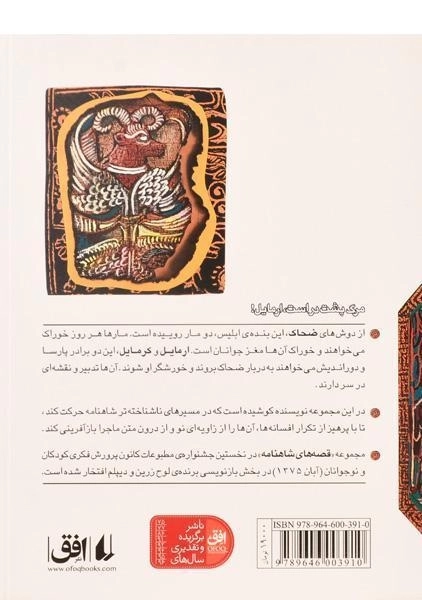 مرگ پشت در است، ارمایل!
از دوش‌های ضحاک، این بنده‌ی ابلیس، دو مار روییده است. مارها هر روز خوراک
می‌خواهند و خوراک آن‌ها مغز جوانان است. ارمایل و کرمایل، این دو برادر پارسا
و دوراندیش می‌خواهند به دربار ضحاک بروند و خورشگر او شوند. آن‌ها تدبیر و نقشه‌ای
در سر دارند.
در این مجموعه نویسنده کوشیده است که در مسیرهای ناشناخته‌تر شاهنامه حرکت کند،
تا با پرهیز از تکرار افسانه‌ها، آن‌ها را از زاویه‌ای نو و از درون متن ماجرا بازآفرینی کند.
مجموعه «قصه‌های شاهنامه» در نخستین جشنواره‌ی مطبوعات کانون پرورش فکری کودکان
و نوجوانان (آبان ۱۳۷۵) در بخش بازنویسی برنده‌ی لوح زرین و دیپلم افتخار شده است.
ISBN 978-964-600-391-0
9 789646 003910
۱۹۰۰۰ تومان
ناشر
برگزیده
و تقدیری
سال‌های
افق
OFOQ
نشر افق
www.ofoqbooks.com